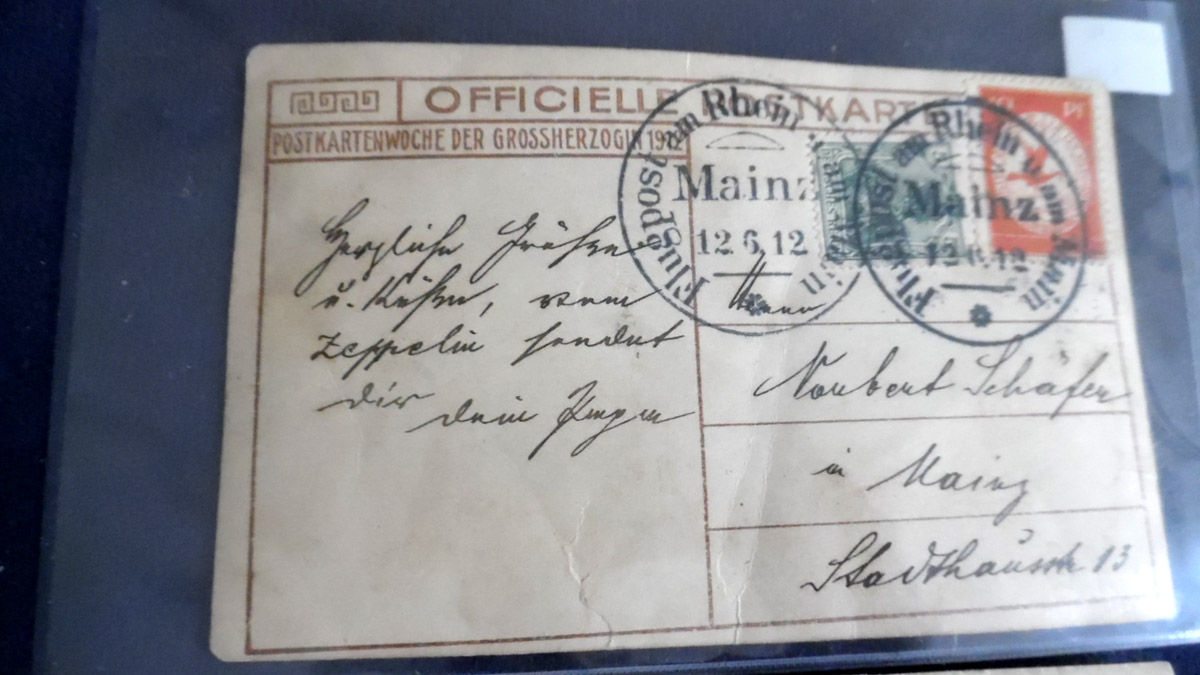 OFFICIELLE POSTKARTE
POSTKARTENWOCHE DER GROSSHERZOGIN 1912
Flugpost am Rhein u. am Main
Mainz
12.6.12
Flugpost am Rhein u. am Main
Mainz
12.6.12
Herzliche Grüße
u. Küße, vom
Zeppelin sendet
dir dein
Herrn
Norbert Schäfer
in Mainz
Stadthausstr 13